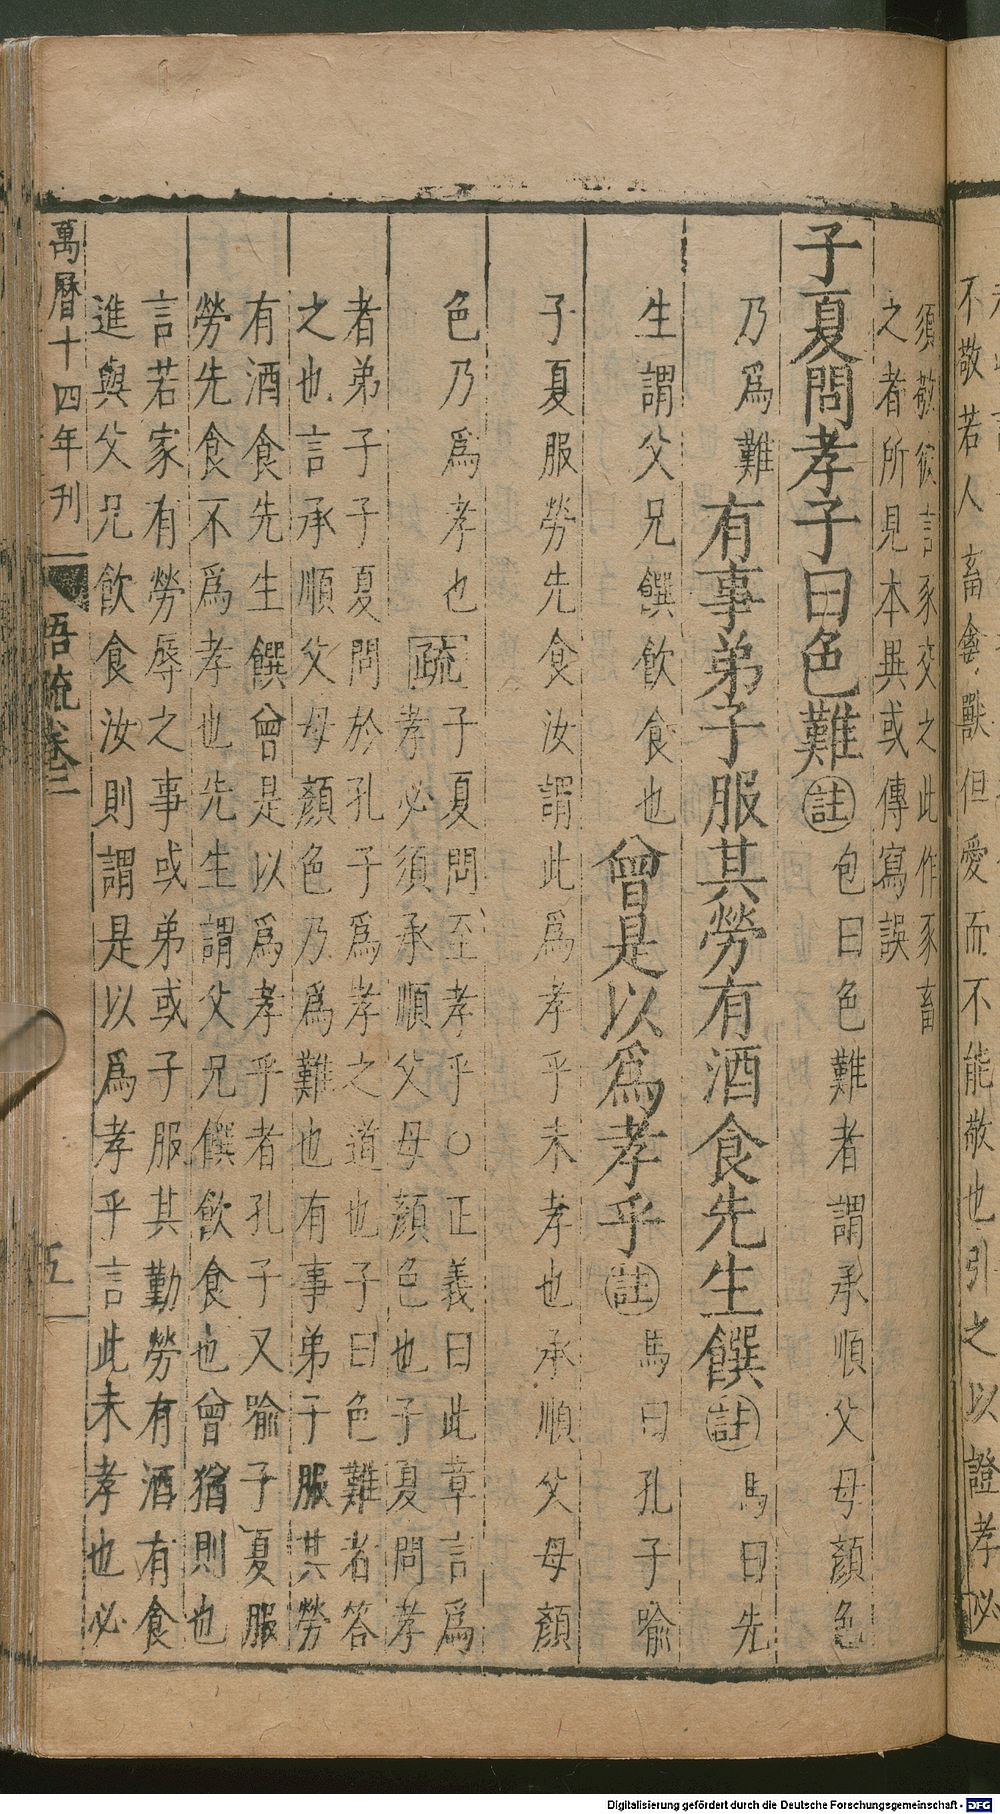 不敬若人畜禽獸但愛而不能敬也引之以證孝必
須敬彼言豕交之此作豕畜
之者所見本異或傳寫誤
子夏問孝子曰色難註包曰色難者謂承順父母顏色
乃爲難有事弟子服其勞有酒食先生饌註馬曰先
生謂父兄饌飲食也曾是以爲孝乎註馬曰孔子喻
子夏服勞先食汝謂此爲孝乎未孝也承順父母顏
色乃爲孝也疏子夏問至孝乎○正義曰此章言爲
孝必須承順父母顏色也子夏問孝
者弟子子夏問於孔子爲孝之道也子曰色難者答
之也言承順父母顏色乃爲難也有事弟子服其勞
有酒食先生饌曾是以爲孝乎者孔子又喻子夏服
勞先食不爲孝也先生謂父兄饌飲食也曾猶則也
言若家有勞辱之事或弟或子服其勤勞有酒有食
進與父兄飲食汝則謂是以爲孝乎言此未孝也必
萬曆十四年刊 語疏卷二 五
Digitalisierung gefördert durch die Deutsche Forschungsgemeinschaft - DFG